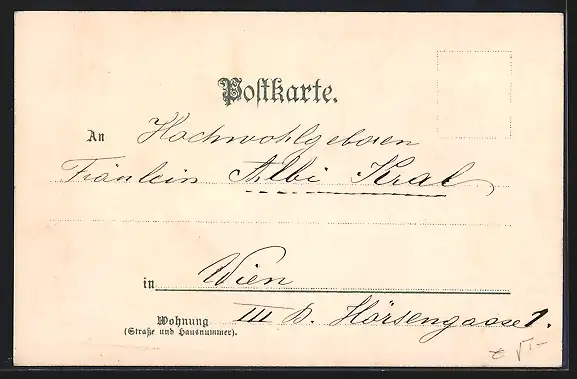 Postkarte.
An Hochwohlgeboren
Fräulein Albi Kral
in Wien
Wohnung III B. Hörsengasse 1.
(Straße und Hausnummer).